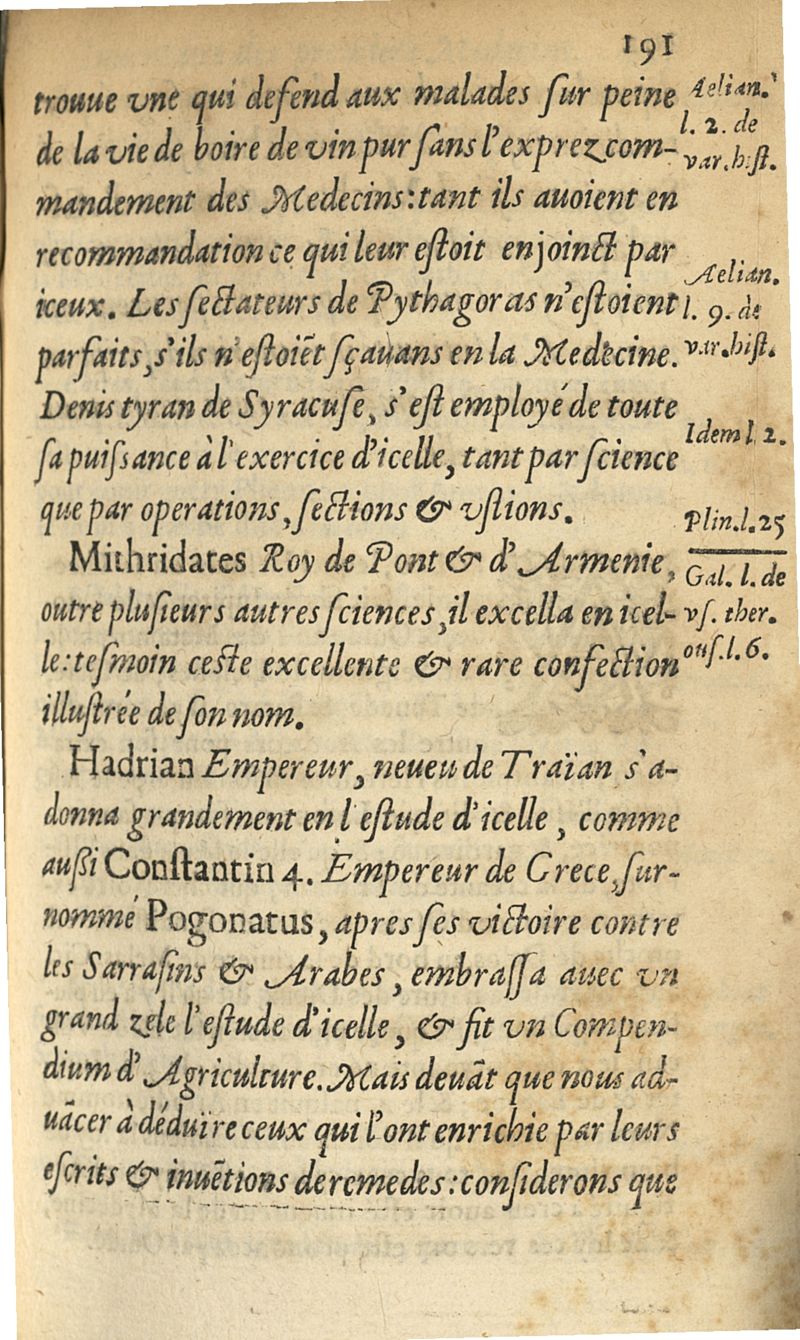 191
trouue vne qui defend aux malades ſur peine
de la vie de boire de vin pur ſans l'exprez com-
mandement des Medecins: tant ils auoient en
recommandation ce qui leur eſtoit enjoinct par
iceux. Les ſectateurs de Pythagoras n'eſtoient
parfaits, s'ils n'eſtoiẽt ſçauans en la Medecine.
Denis tyran de Syracuſe, s'eſt employé de toute
ſa puiſsance à l'exercice d'icelle, tant par ſcience
que par operations, ſections & vſtions.
Mithridates Roy de Pont & d'Armenie,
outre pluſieurs autres ſciences, il excella en icel-
le: teſmoin ceſte excellente & rare confection
illuſtrée de ſon nom.
Hadrian Empereur, neueu de Traïan s'a-
donna grandement en l'eſtude d'icelle, comme
auſsi Conſtantin 4. Empereur de Grece, ſur-
nommé Pogonatus, apres ſes victoire contre
les Sarraſins & Arabes, embraſſa auec vn
grand zele l'eſtude d'icelle, & fit vn Compen-
dium d'Agriculture. Mais deuãt que nous ad-
uãcer à déduïre ceux qui l'ont enrichie par leurs
eſcrits & inuẽtions de remedes: conſiderons que
Aelian.
l. 2. de
var. hiſt.
Aelian.
l. 9. de
var. hiſt.
Idem l. 2.
Plin. l. 25
Gal. l. de
vſ. ther.
l. 6.